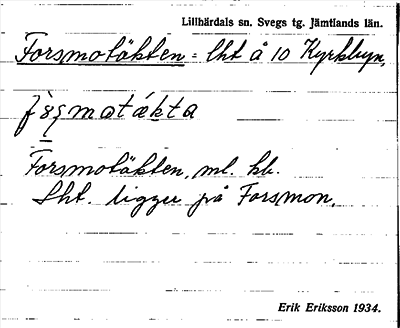 Lillhärdals sn. Svegs tg. Jämtlands län.
Forsmotäkten = lht å 10 Kyrkbyn,
Forsmotäkten, ml. kb.
Lht. ligger på Forsmon.
Erik Eriksson 1934.